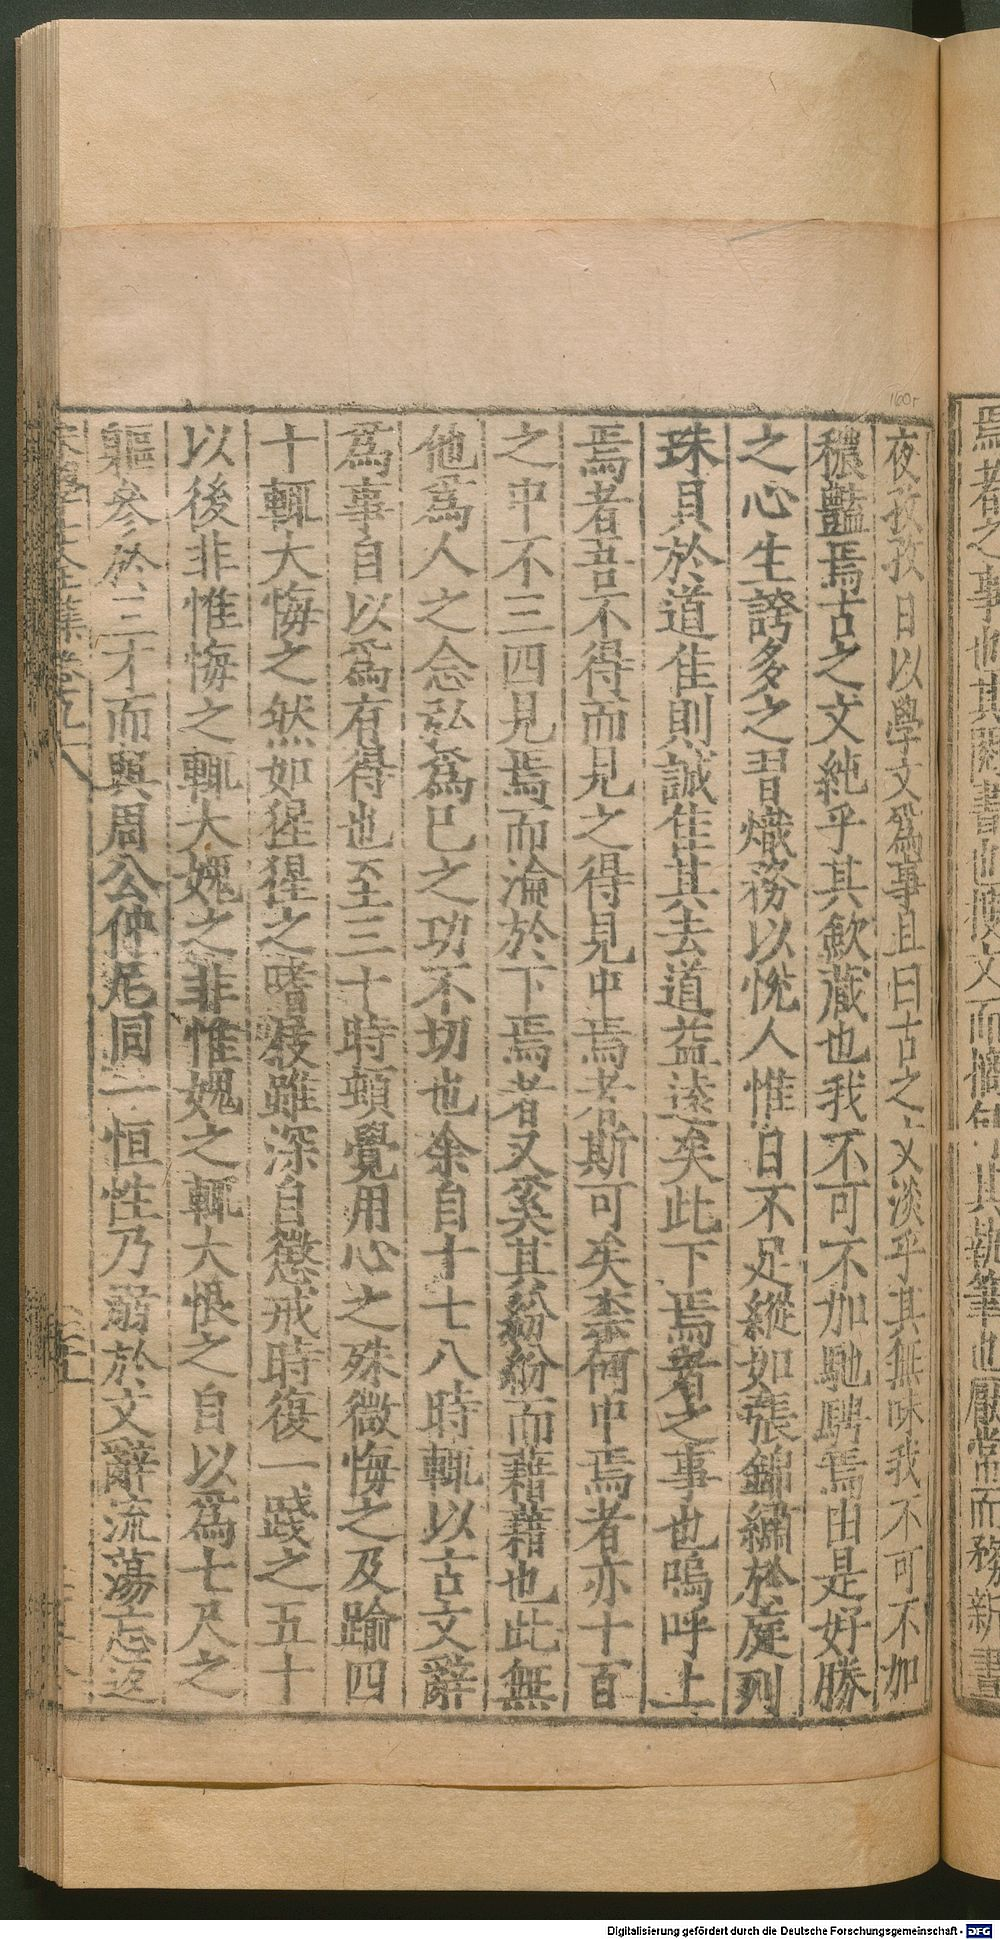 焉者之事也其
而務新畫
夜孜孜日以學文爲事且曰古之文淡乎其無味我不可不加
穠豔焉古之文純乎其歛藏也我不可不加馳騁焉由是好勝
之心生誇多之習熾務以悅人惟日不足縱如張錦繡於庭列
珠貝於道佳則誠佳其去道益遠矣此下焉者之事也嗚呼上
焉者吾不得而見之得見中焉者斯可矣柰何中焉者亦十百
之中不三四見焉而淪於下焉者又奚其紛紛而藉藉也此無
他爲人之念弘爲已之功不切也余自十七八時輒以古文辭
爲事自以爲有得也至三十時頓覺用心之殊微悔之及踰四
十輒大悔之然如猩猩之嗜屐雖深自懲戒時復一踐之五十
以後非惟悔之輒大媿之非惟媿之輒大恨之自以爲七尺之
軀參於三才而與周公仲尼同一恒性乃溺於文辭流蕩忘返
160r
Digitalisierung gefördert durch die Deutsche Forschungsgemeinschaft - DFG